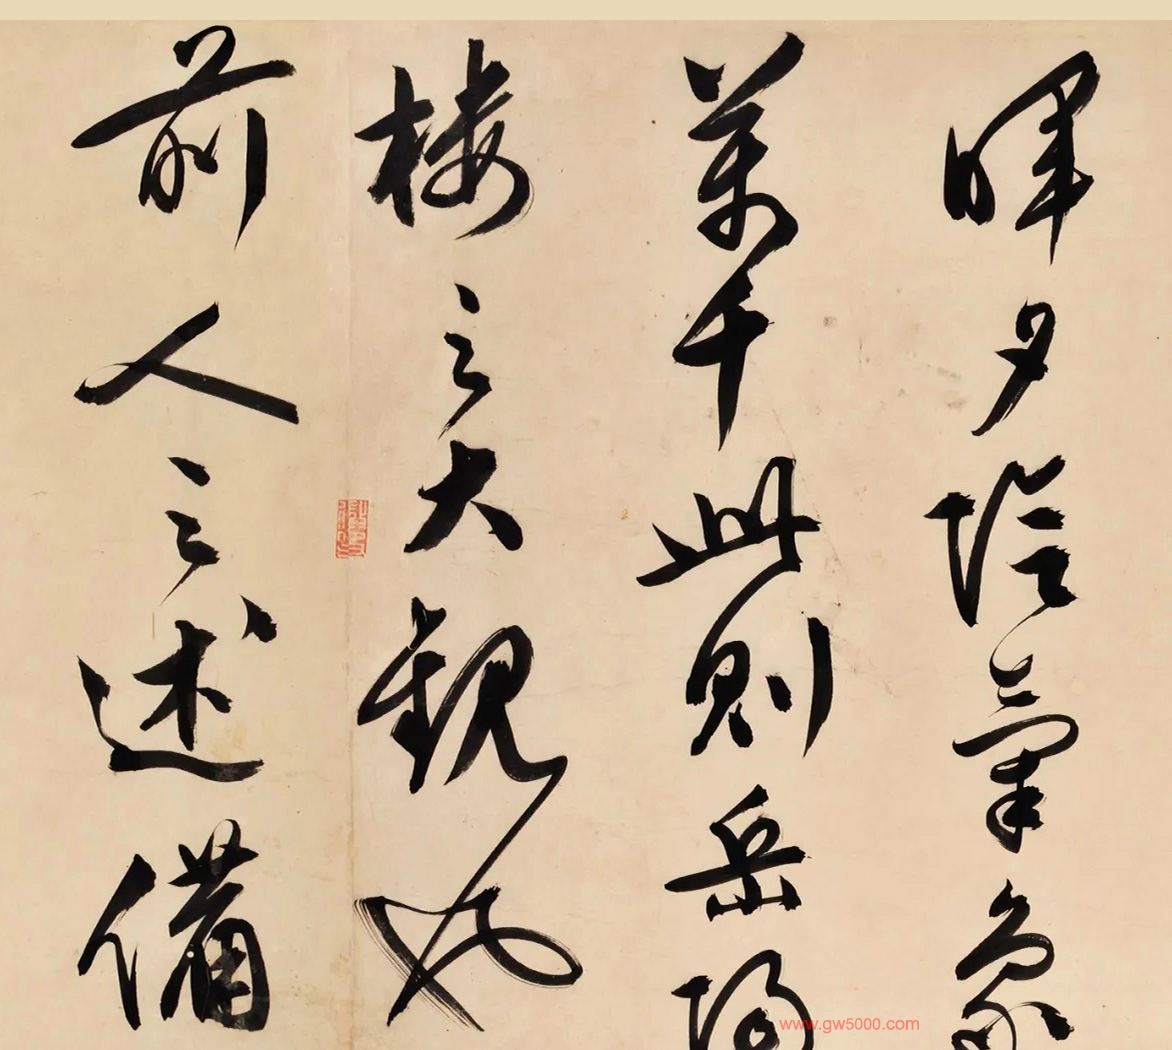 暉夕陰氣象
萬千此則岳陽
樓之大觀也
前人之述備
www.gw5000.com